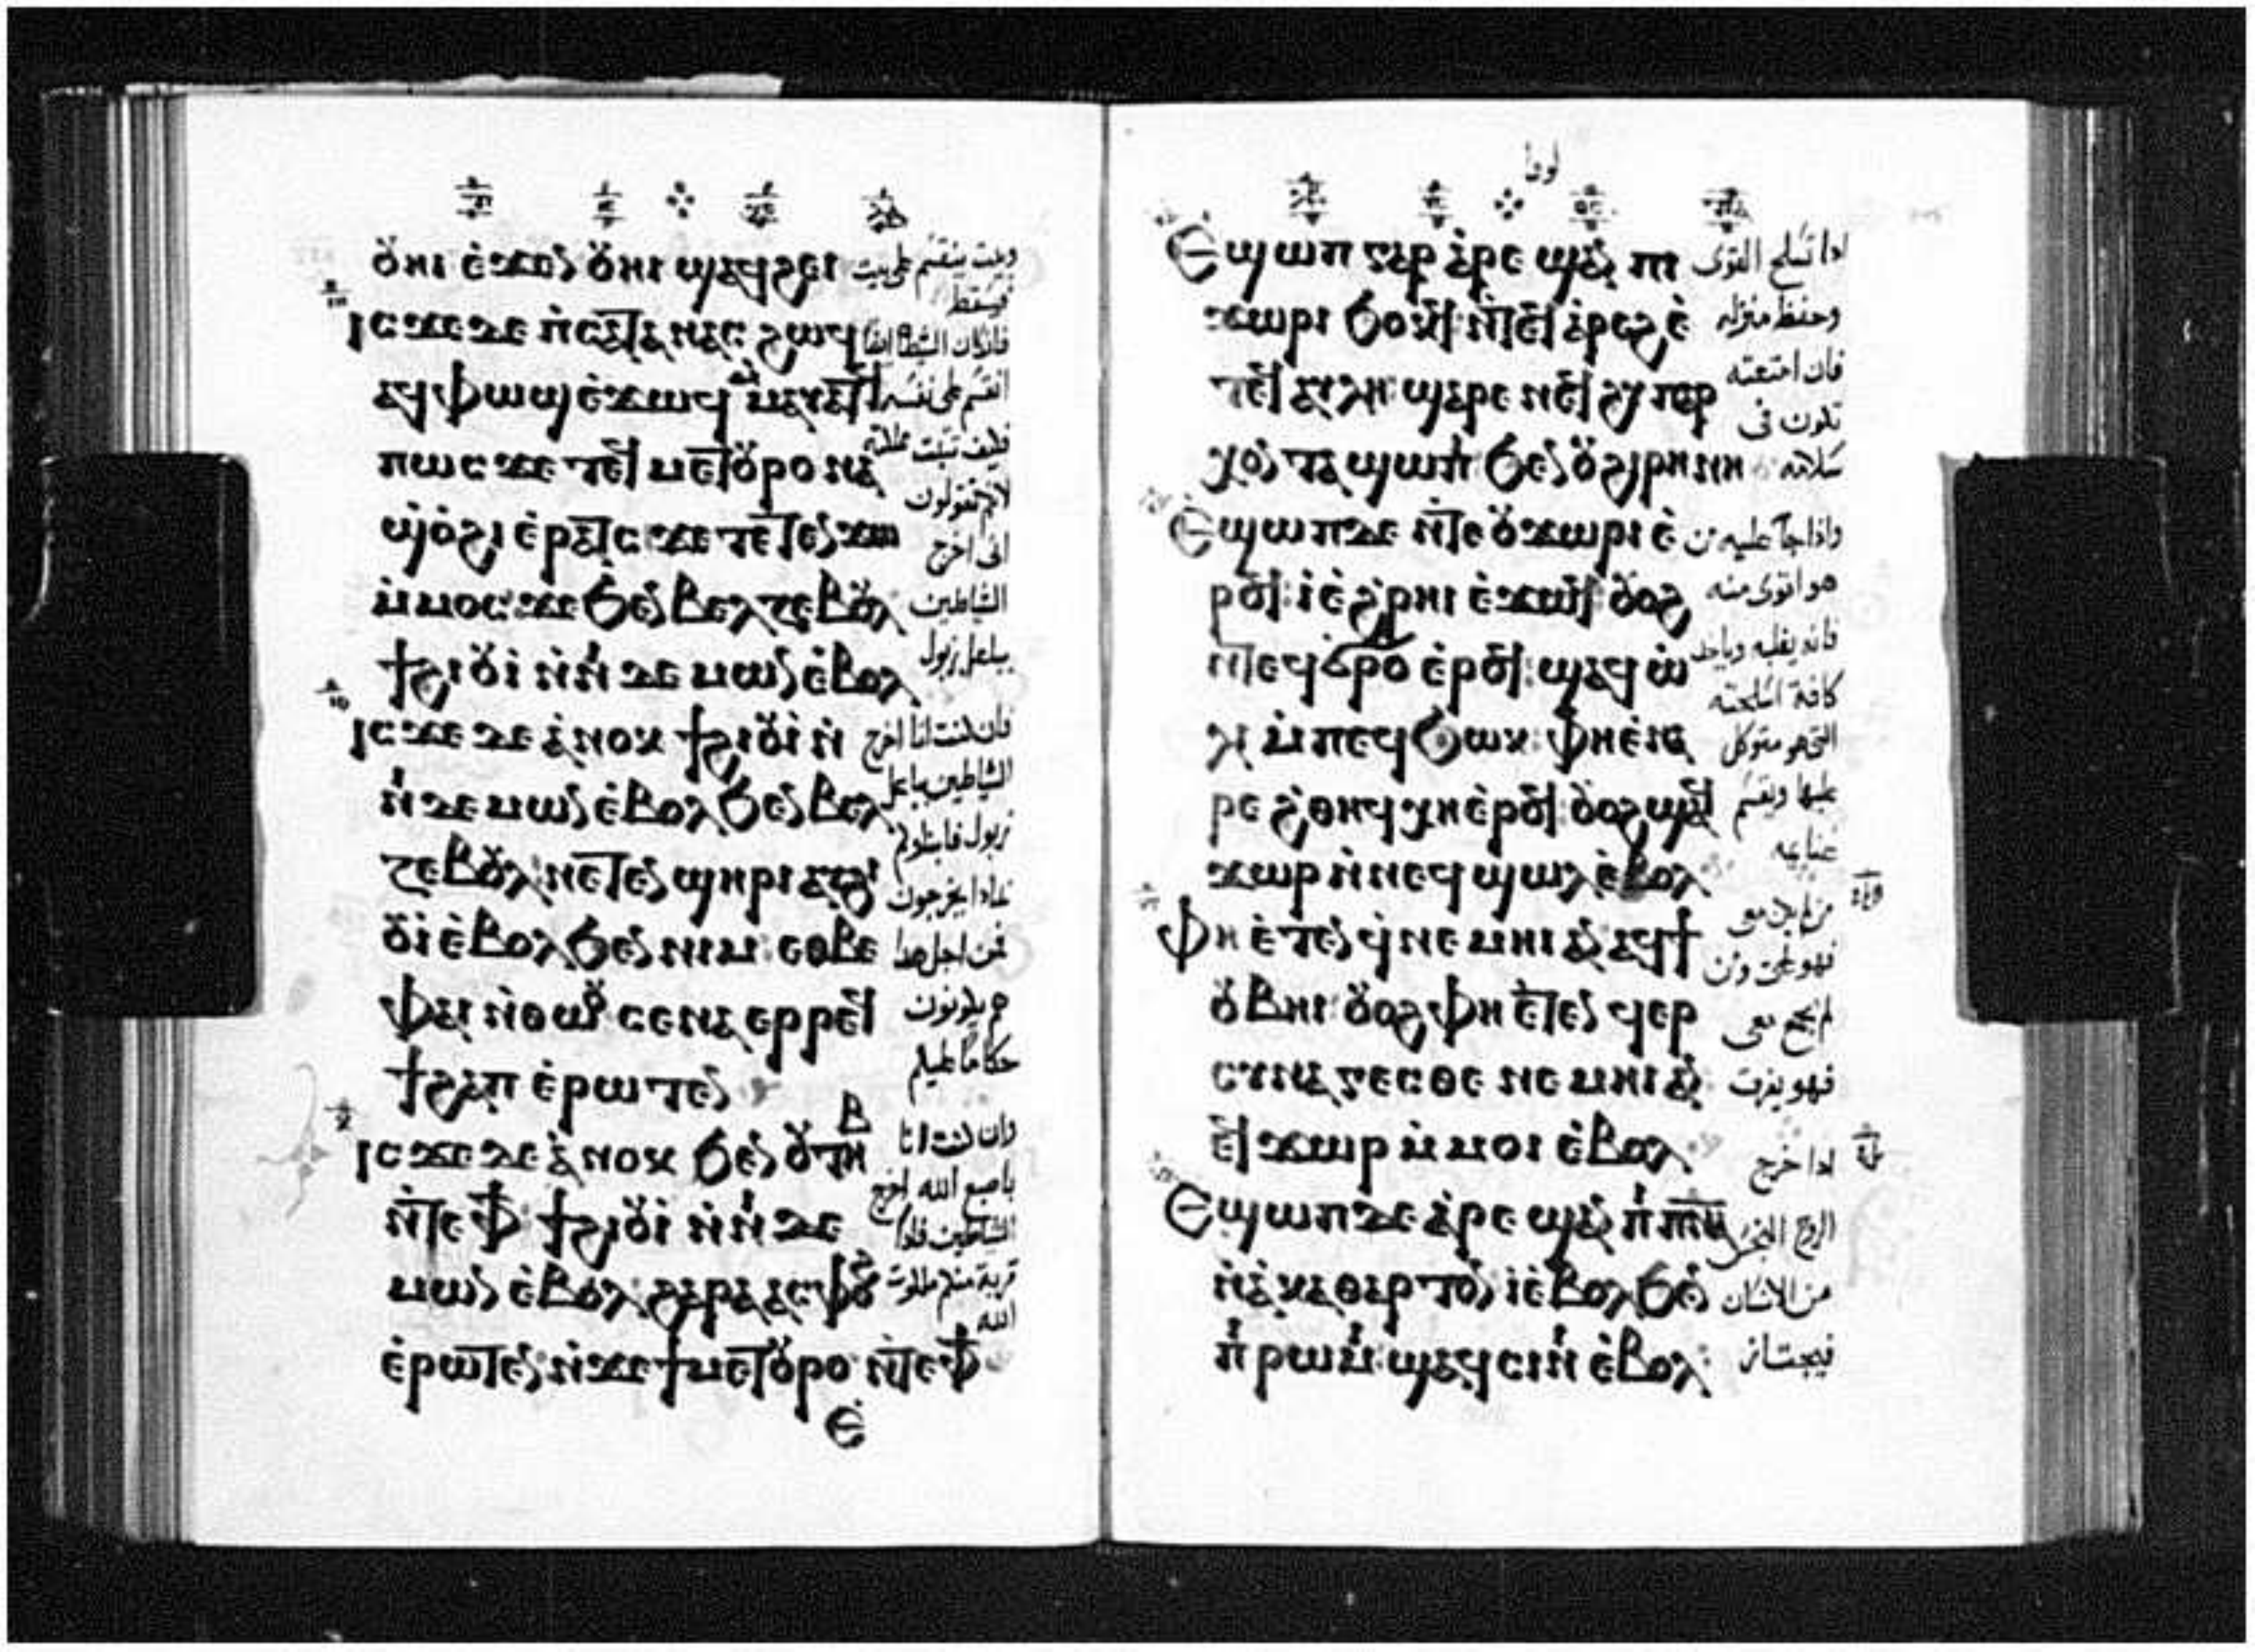 ⲟⲩⲏⲓ ⲉ̀ϫⲉⲛ ⲟⲩⲏⲓ ϣⲁϥϩⲉⲓ
ⲓⲥϫⲉ ⲇⲉ ⲡ̀ⲥⲁⲧⲁⲛⲁⲥ ϩⲱϥ
ⲁϥⲫⲱϣ ⲉ̀ϫⲱϥ ⲙ̀ⲙⲁⲩⲁⲧϥ
ⲡⲱⲥ ϫⲉ ⲧⲉϥⲙⲉⲧⲟⲩⲣⲟ ⲛⲁ
ϣ̀ⲟ̀ϩⲓ ⲉ̀ⲣⲁⲧⲥ ϫⲉ ⲧⲉⲧⲉⲛϫⲱ
ⲙ̀ⲙⲟⲥ ϫⲉ ϧⲉⲛ ⲃⲉⲗⲍⲉⲃⲟⲩⲗ
ϯϩⲓⲟⲩⲓ̀ ⲛ̀ⲛⲓⲇⲉⲙⲱⲛ ⲉ̀ⲃⲟⲗ
ⲓⲥϫⲉ ⲇⲉ ⲁ̀ⲛⲟⲕ ϯϩⲓⲟⲩⲓ̀ ⲛ̀
ⲛⲓⲇⲉⲙⲱⲛ ⲉ̀ⲃⲟⲗ ϧⲉⲛ ⲃⲉⲗ
ⲍⲉⲃⲟⲩⲗ ⲛⲉⲧⲉⲛϣⲏⲣⲓ ⲁⲩϩⲓ
ⲟⲩⲓ̀ ⲉ̀ⲃⲟⲗ ϧⲉⲛ ⲛⲓⲙ ⲉⲑⲃⲉ
ⲫⲁⲓ ⲛ̀ⲑⲱⲟⲩ ⲥⲉⲛⲁⲉⲣⲣⲉϥ
ϯϩⲁⲡ ⲉ̀ⲣⲱⲧⲉⲛ
ⲓⲥϫⲉ ⲇⲉ ⲁ̀ⲛⲟⲕ ϧⲉⲛ ⲟⲩⲧⲏⲃ
ⲛ̀ⲧⲉ ⲫϯ ϯϩⲓⲟⲩⲓ̀ ⲛ̀ⲛⲓⲇⲉ
ⲙⲱⲛ ⲉ̀ⲃⲟⲗ ϩⲁⲣⲁ ⲁⲥⲫⲟϩ
ⲉ̀ⲣⲱⲧⲉⲛ ⲛ̀ϫⲉ ϯⲙⲉⲧⲟⲩⲣⲟ ⲛ̀ⲧⲉ ⲫϯ
ⲉ̀
وبيت ينقسم على بيت
فيسقط
فان كان الشيطان ايضا
انقسم على نفسه
فكيف تثبت مملكته
لانكم تقولون
انى اخرج
الشياطين
بباعل زبول
فان كنت انا اخرج
الشياطين بباعل
زبول فابناوكم
بماذا يخرجون
فمن اجل هذا
هم يكونون
حكاما عليكم
وان كنت انا
باصبع الله اخرج
الشياطين
قربت منكم ملكوت
الله
لوقا
ⲉ̀ϣⲱⲡ ⲅⲁⲣ ⲁ̀ⲣⲉϣⲁⲛ ⲡⲓ
ϫⲱⲣⲓ ϧⲟⲕϥ ⲛ̀ⲧⲉϥⲁ̀ⲣⲉϩ ⲉ̀
ⲧⲉϥⲁⲩⲗⲏ ϣⲁⲣⲉ ⲛⲉϥϩⲩⲡⲁⲣ
ⲭⲟⲛⲧⲁ ϣⲱⲡⲓ ϧⲉⲛ ⲟⲩϩⲓⲣⲏⲛⲏ
ⲉ̀ϣⲱⲡ ⲇⲉ ⲛ̀ⲧⲉ ⲟⲩϫⲱⲣⲓ ⲉ̀
ⲣⲟϥ ⲓ̀ ⲉ̀ϩ̀ⲣⲏⲓ ⲉ̀ϫⲱϥ ⲟⲩⲟϩ
ⲛ̀ⲧⲉϥϭⲣⲟ ⲉ̀ⲣⲟϥ ϣⲁϥⲱ̀
ⲗⲓ ⲙ̀ⲡⲉϥϧⲱⲕ ⲫⲏ ⲉ̀ⲛⲁ
ⲣⲉ ϩ̀ⲑⲏϥ ⲭⲏ ⲉ̀ⲣⲟϥ ⲟⲩⲟϩ ϣⲁϥ
ϫⲱⲣ ⲛ̀ⲛⲉϥϣⲱⲗ ⲉ̀ⲃⲟⲗ
ⲫⲏ ⲉ̀ⲧⲉⲛϥ̀ⲛⲉⲙⲏⲓ ⲁⲛ ⲁϥϯ
ⲟⲩⲃⲏⲓ ⲟⲩⲟϩ ⲫⲏ ⲉ̀ⲧⲉⲛϥⲉⲣ
ⲥⲩⲛⲁⲅⲉⲥⲑⲉ ⲛⲉⲙⲏⲓ ⲁⲛ
ⲉϥϫⲱⲣ ⲙ̀ⲙⲟⲓ ⲉ̀ⲃⲟⲗ
ⲉ̀ϣⲱⲡ ⲇⲉ ⲁ̀ⲣⲉϣⲁⲛ ⲡⲓⲡⲛⲁ
ⲛ̀ⲁ̀ⲕⲁⲑⲁⲣⲧⲟⲛ ⲓ̀ ⲉ̀ⲃⲟⲗ ϧⲉⲛ
ⲡⲓⲣⲱⲙⲓ ϣⲁϥⲥⲓⲛⲓ ⲉ̀ⲃⲟⲗ
اذا تسلح القوى
وحفظ منزله
فان امتعته
تكون فى
سلامه
واذا جآ عليه من
هو اقوى منه
فانه يغلبه وياخذ
كافة اسلحته
التى هو متوكل
عليها ويقسم
غنايمه
من لم يكن معى
فهو
لم يجمع معى
فهو يفرق
اذا خرج
الروح النجس
من الانسان
فيجتاز